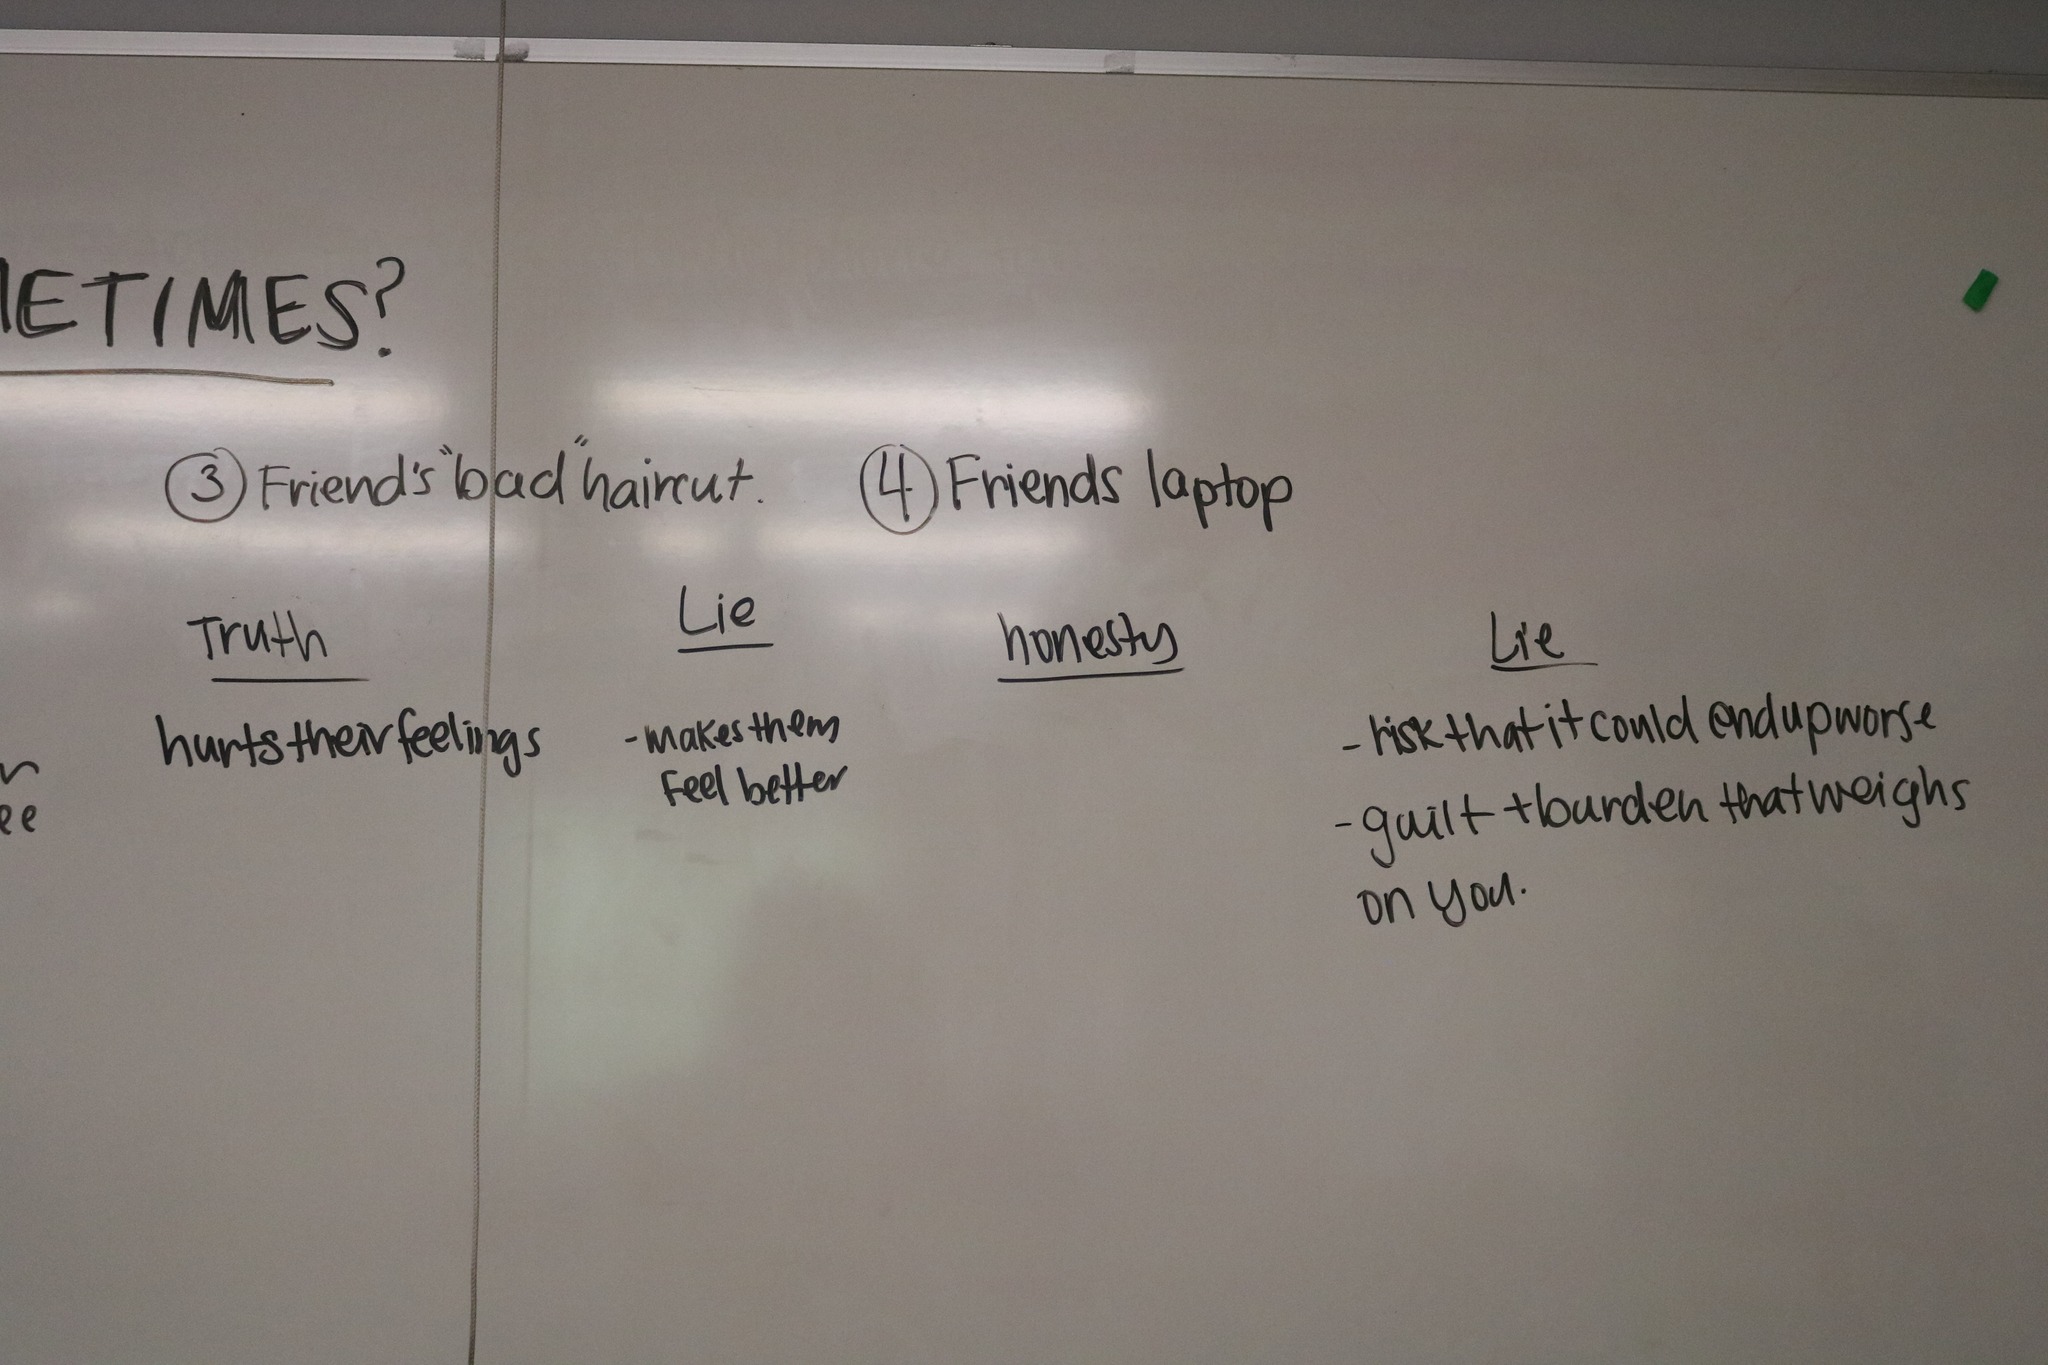 METIMES?
③ Friend's "bad" haircut.
Truth
hurts their feelings
Lie
- makes them
Feel better
④ Friends laptop
honesty
Lie
- risk that it could end up worse
- guilt + burden that weighs
on you.
ee